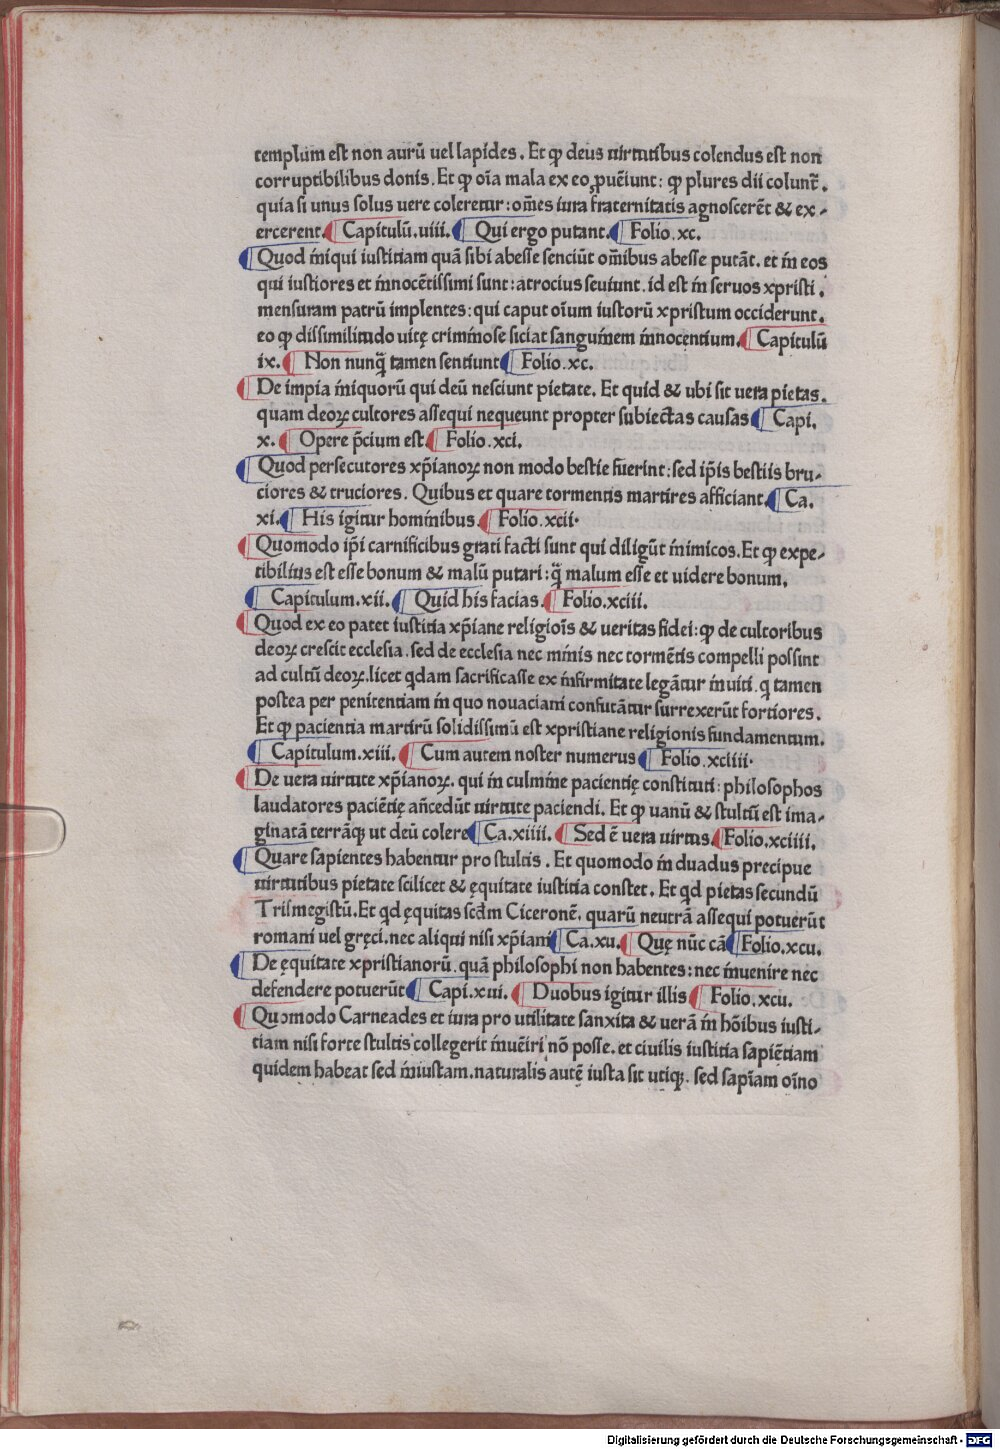 templum est non aurū uel lapides. Et ꝙ deus uirtutibus colendus est non
corruptibilibus donis. Et ꝙ oīa mala ex eo ꝓuēiunt: ꝙ plures dii colunt̄.
quia si unus solus uere coleretur: om̄es iura fraternitatis agnoscerēt & ex-
ercerent. Capitulū.uiii. Qui ergo putant. Folio.xc.
Quod iniqui iustitiam quā sibi abesse senciūt om̄ibus abesse putāt. et in eos
qui iustiores et innocētissimi sunt: atrocius seuiunt. id est in seruos xpristi.
mensuram patrū implentes: qui caput oīum iustorū xpristum occiderunt.
eo ꝙ dissimilitudo uitę criminose siciat sanguinem innocentium. Capitulū
ix. Non nunq̄ tamen sentiunt Folio.xc.
De impia iniquorū qui deū nesciunt pietate. Et quid & ubi sit uera pietas.
quam deoꝝ cultores assequi nequeunt propter subiectas causas Capi.
x. Opere p̄cium est. Folio.xci.
Quod persecutores xp̄ianoꝝ non modo bestie fuerint: sed ip̄is bestiis bru-
ciores & truciores. Quibus et quare tormentis martires afficiant. Ca.
xi. His igitur hominibus. Folio.xcii.
Quomodo ip̄i carnificibus grati facti sunt qui diligūt inimicos. Et ꝙ expe-
tibilius est esse bonum & malū putari: q̄ malum esse et uidere bonum.
Capitulum.xii. Quid his facias. Folio.xciii.
Quod ex eo patet iustitia xp̄iane religiōis & ueritas fidei: ꝙ de cultoribus
deoꝝ crescit ecclesia. sed de ecclesia nec minis nec tormētis compelli possint
ad cultū deoꝝ. licet qdam sacrificasse ex infirmitate legātur inuiti. q tamen
postea per penitentiam in quo nouaciani confutātur surrexerūt fortiores.
Et ꝙ pacientia martirū solidissimū est xpristiane religionis fundamentum.
Capitulum.xiii. Cum autem noster numerus Folio.xciiii.
De uera uirtute xp̄ianoꝝ. qui in culmine pacientię constituti: philosophos
laudatores paciētię an̄cedūt uirtute paciendi. Et ꝙ uanū & stultū est ima-
ginatā terrāq̨ ut deū colere Ca.xiiii. Sed ē uera uirtus. Folio.xciiii.
Quare sapientes habentur pro stultis. Et quomodo in duabus precipue
uirtutibus pietate scilicet & ęquitate iustitia constet. Et qd pietas secundū
Trismegistū. Et qd ęquitas scd̄m Ciceronē. quarū neutrā assequi potuerūt
romani uel gręci. nec aliqui nisi xp̄iani Ca.xu. Quę nūc cā Folio.xcu.
De ęquitate xpristianorū. quā philosophi non habentes: nec inuenire nec
defendere potuerūt Capi.xui. Duobus igitur illis Folio.xcu.
Quomodo Carneades et iura pro utilitate sanxita & uerā in hōibus iusti-
tiam nisi forte stultis collegerit inuēiri nō posse. et ciuilis iustitia sapiētiam
quidem habeat sed iniustam. naturalis autē iusta sit utiq̨. sed sapīam oīno
Digitalisierung gefördert durch die Deutsche Forschungsgemeinschaft - DFG